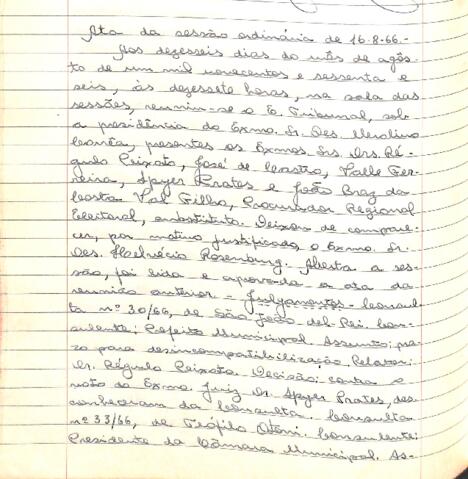 Ata da sessão ordinária de 16-8-66.-
Aos dezesseis dias do mês de agôs-
to de um mil novecentos e sessenta e
seis, às dezessete horas, na sala das
sessões, reuniu-se o E. Tribunal, sob
a presidência do Exmo. Sr. Des. Merolino
Corrêa, presentes os Exmos. Srs. Drs. Ré-
gulo Peixoto, José de Castro, Valle Fer-
reira, Apyer Prates e João Braz da
Costa Val Filho, Procurador Regional
Eleitoral, substituto. Deixou de compare-
cer, por motivo justificado, o Exmo. Sr.
Des. Helvécio Rosenburg. Aberta a ses-
são, foi lida e aprovada a ata da
reunião anterior - Julgamentos - Consul-
ta nº 30/66, de São João del-Rei. Con-
sulente: Prefeito Municipal. Assunto: pra-
zo para desincompatibilização. Relator:
Dr. Régulo Peixoto. Decisão: contra o
voto do Exmo. Juiz Dr. Apyer Prates, des-
conheceram da Consulta. Consulta
nº 33/66, de Teófilo Otoni. Consulente:
Presidente da Câmara Municipal. As-